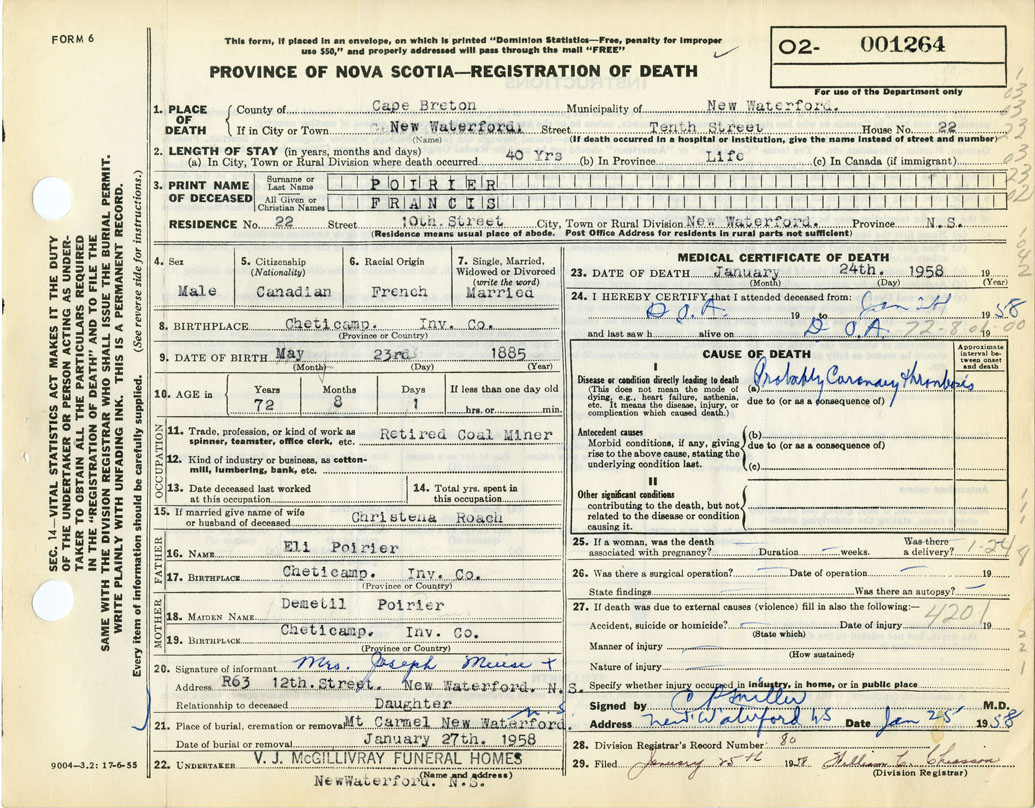 FORM 6
This form, if placed in an envelope, on which is printed "Dominion Statistics—Free, penalty for improper
use $50," and properly addressed will pass through the mail "FREE"
O2- 001264
For use of the Department only
PROVINCE OF NOVA SCOTIA—REGISTRATION OF DEATH
1. PLACE OF DEATH
County of Cape Breton Municipality of New Waterford.
If in City or Town New Waterford. Street Tenth Street House No. 22
(Name) (If death occurred in a hospital or institution, give the name instead of street and number)
2. LENGTH OF STAY (in years, months and days)
(a) In City, Town or Rural Division where death occurred 40 Yrs (b) In Province Life (c) In Canada (if immigrant)
3. PRINT NAME OF DECEASED
Surname or Last Name POIRIER
All Given or Christian Names FRANCIS
RESIDENCE No. 22 Street 10th.Street City, Town or Rural Division New Waterford. Province N.S.
(Residence means usual place of abode. Post Office Address for residents in rural parts not sufficient)
4. Sex
Male
5. Citizenship
(Nationality)
Canadian
6. Racial Origin
French
7. Single, Married,
Widowed or Divorced
(write the word)
Married
8. BIRTHPLACE Cheticamp. Inv. Co.
(Province or Country)
9. DATE OF BIRTH May 23rd 1885
(Month) (Day) (Year)
10. AGE in
Years Months Days If less than one day old
72 8 1 hrs. or min.
OCCUPATION
11. Trade, profession, or kind of work as
spinner, teamster, office clerk, etc. Retired Coal Miner
12. Kind of industry or business, as cotton-
mill, lumbering, bank, etc.
13. Date deceased last worked
at this occupation
14. Total yrs. spent in
this occupation
15. If married give name of wife
or husband of deceased Christena Roach
FATHER
16. NAME Eli Poirier
17. BIRTHPLACE Cheticamp. Inv. Co.
(Province or Country)
MOTHER
18. MAIDEN NAME Demetil Poirier
19. BIRTHPLACE Cheticamp. Inv. Co.
(Province or Country)
20. Signature of informant Mrs. Joseph Muise +
Address R63 12th.Street. New Waterford. N.S.
Relationship to deceased Daughter
N.S
21. Place of burial, cremation or removal Mt Carmel New Waterford.
Date of burial or removal January 27th. 1958
22. UNDERTAKER V. J. McGILLIVRAY FUNERAL HOMES
(Name and address)
NewWaterford. N.S.
9004—3.2: 17-6-55
SEC. 14—VITAL STATISTICS ACT MAKES IT THE DUTY
OF THE UNDERTAKER OR PERSON ACTING AS UNDER-
TAKER TO OBTAIN ALL THE PARTICULARS REQUIRED
IN THE "REGISTRATION OF DEATH" AND TO FILE THE
SAME WITH THE DIVISION REGISTRAR WHO SHALL ISSUE THE BURIAL PERMIT.
WRITE PLAINLY WITH UNFADING INK. THIS IS A PERMANENT RECORD.
Every item of information should be carefully supplied. (See reverse side for instructions.)
MEDICAL CERTIFICATE OF DEATH
23. DATE OF DEATH January 24th. 1958 19
(Month) (Day) (Year)
24. I HEREBY CERTIFY that I attended deceased from:
D O A 19 to Jan 24 1958
and last saw h alive on D O A 19
72-8 01-00
CAUSE OF DEATH
Approximate
interval be-
tween onset
and death
I
Disease or condition directly leading to death
(This does not mean the mode of
dying, e.g., heart failure, asthenia,
etc. It means the disease, injury, or
complication which caused death.)
(a) Probably Coronary thrombosis
due to (or as a consequence of)
Antecedent causes
Morbid conditions, if any, giving
rise to the above cause, stating the
underlying condition last.
(b)
due to (or as a consequence of)
(c)
II
Other significant conditions
contributing to the death, but not
related to the disease or condition
causing it.
25. If a woman, was the death
associated with pregnancy? Duration weeks. Was there
a delivery?
1-24
26. Was there a surgical operation? Date of operation 19
State findings Was there an autopsy?
27. If death was due to external causes (violence) fill in also the following:—
4201
Accident, suicide or homicide? Date of injury 19
(State which)
Manner of injury
(How sustained)
Nature of injury
Specify whether injury occurred in industry, in home, or in public place
Signed by C P Miller M.D.
Address New Waterford NS Date Jan 25 1958
28. Division Registrar's Record Number 80
29. Filed January 25th 1958 William C. Chiasson
(Division Registrar)